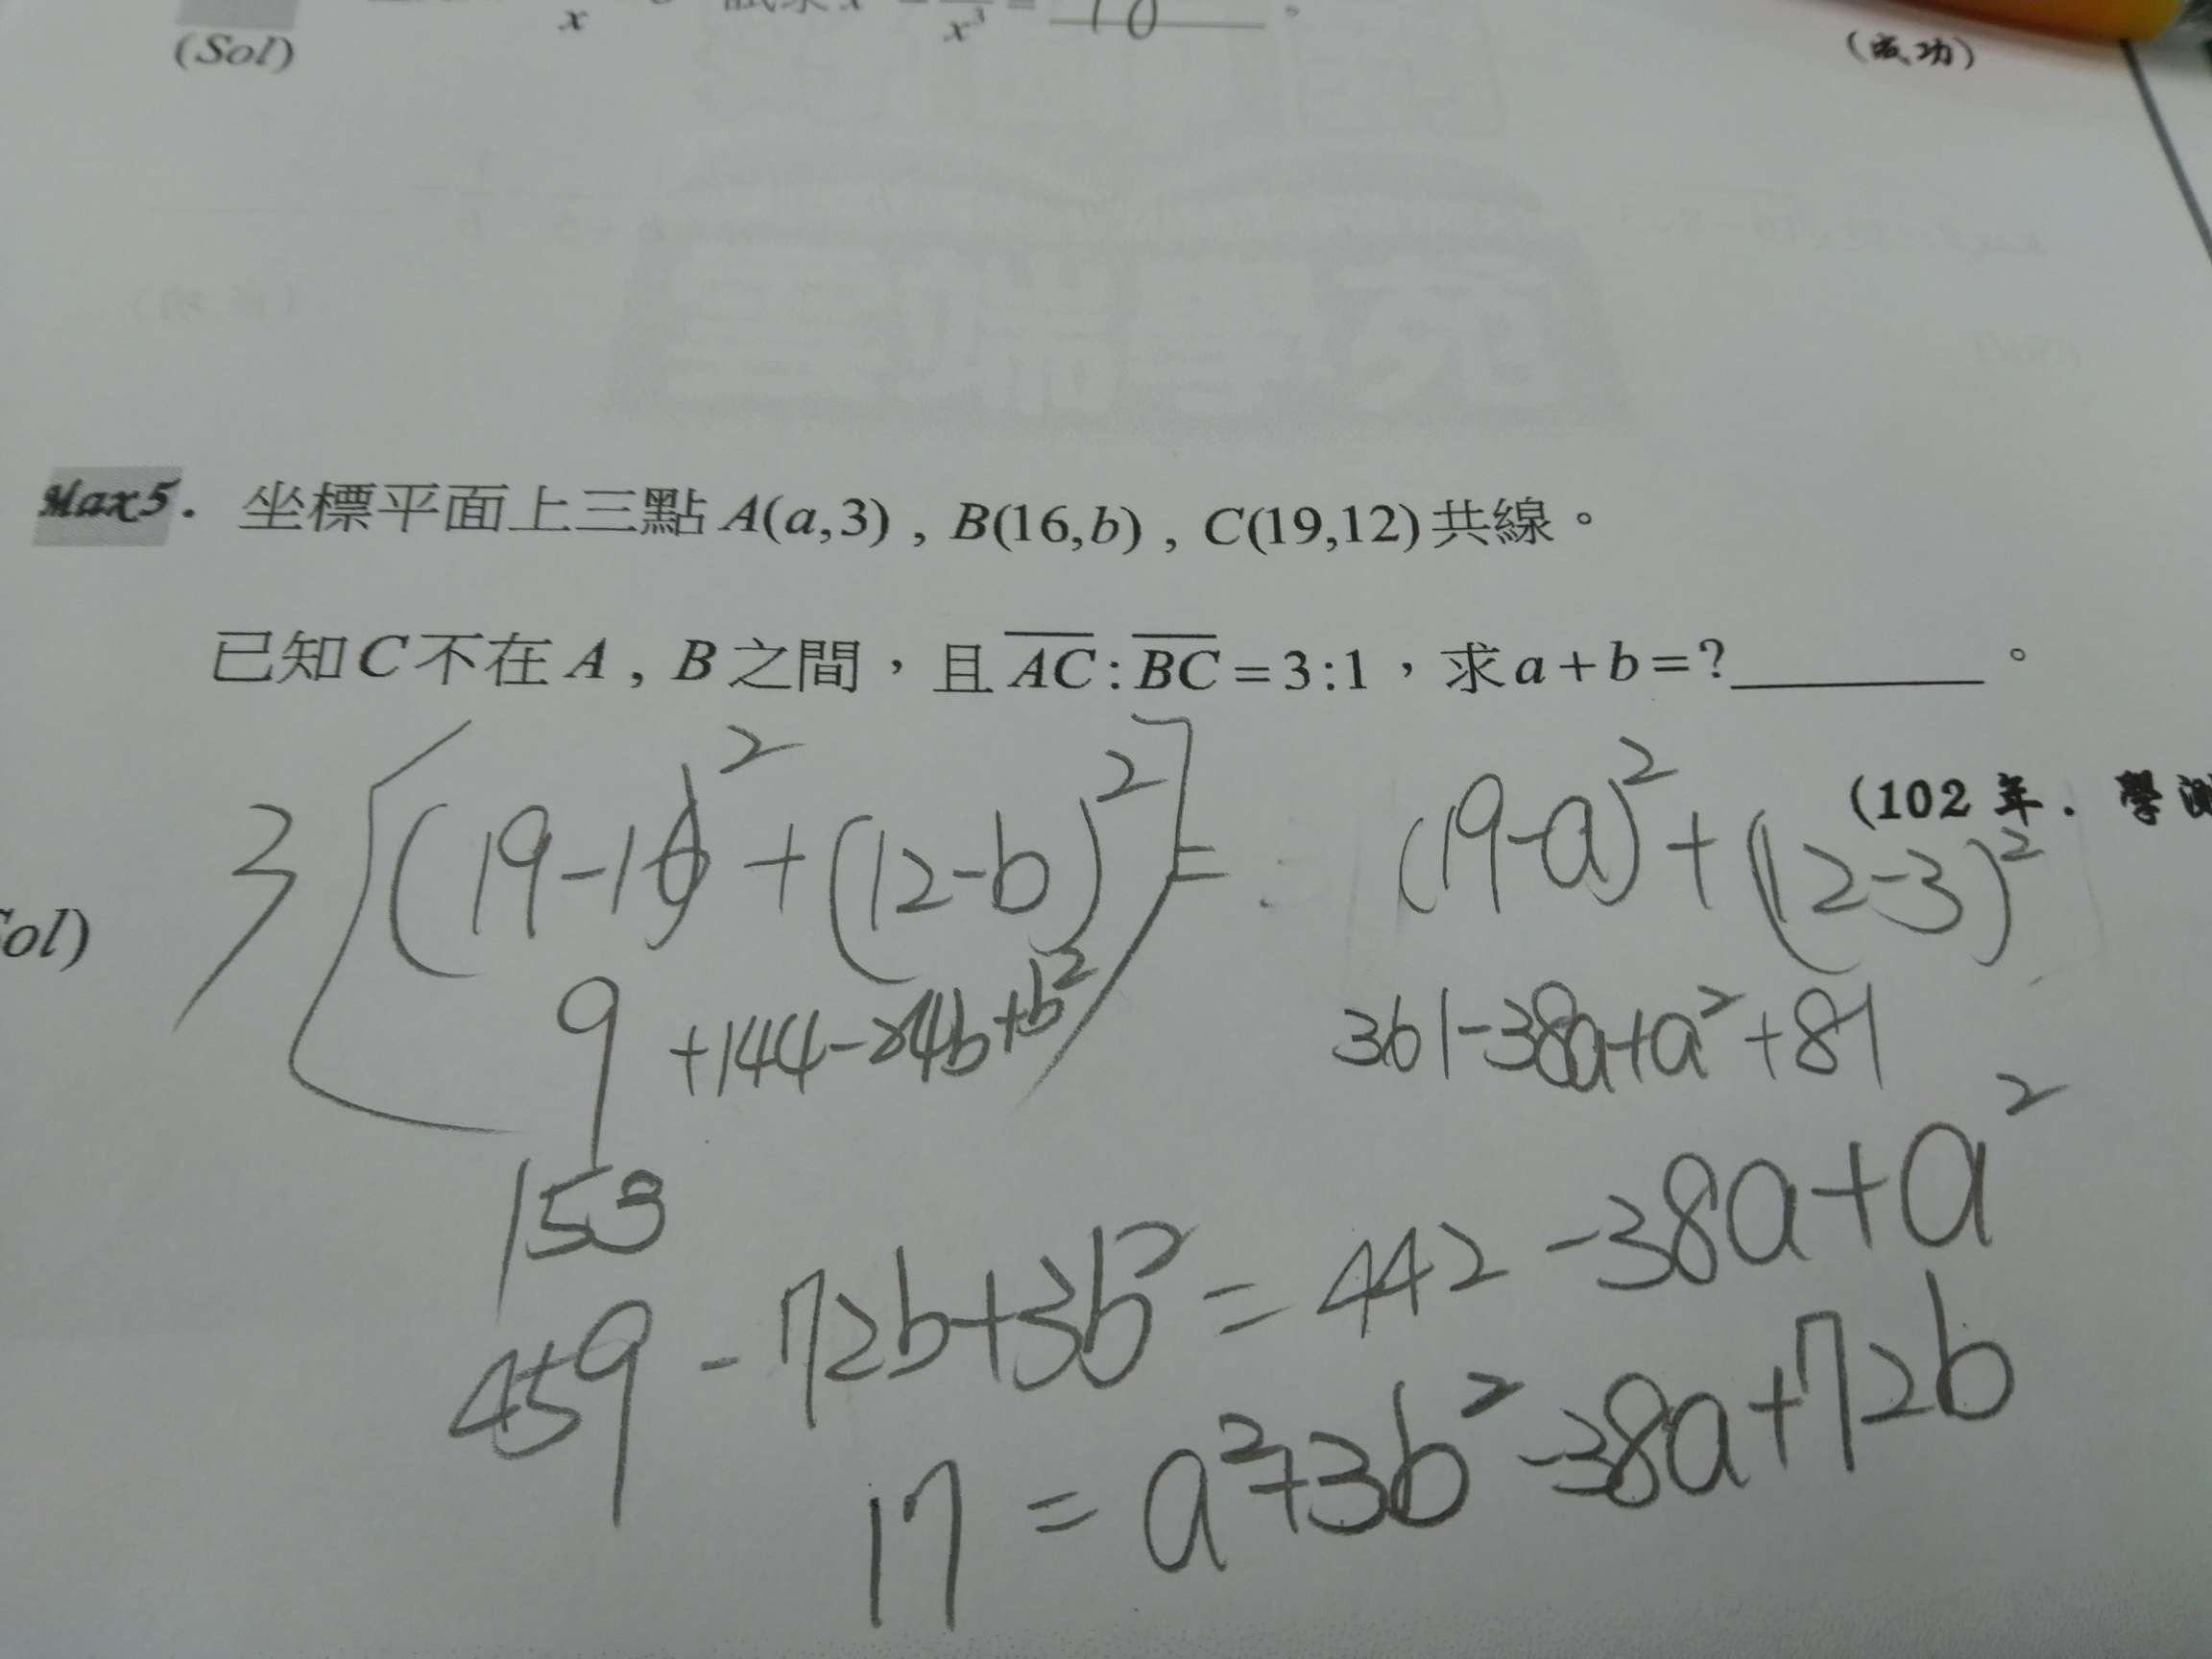 x x³ = 10 。
(Sol) (成功)
Max5. 坐標平面上三點 A(a,3) , B(16,b) , C(19,12) 共線。
已知 C 不在 A , B 之間，且 AC : BC = 3:1，求 a+b=?________。
(102 年. 學測
3[(19-16)²+(12-b)²] = (19-a)²+(12-3)²
ol)
9 +144-24b+b² 361-38a+a²+81
153
459 -72b+3b² = 442 -38a+a²
17 = a²+3b²-38a+72b